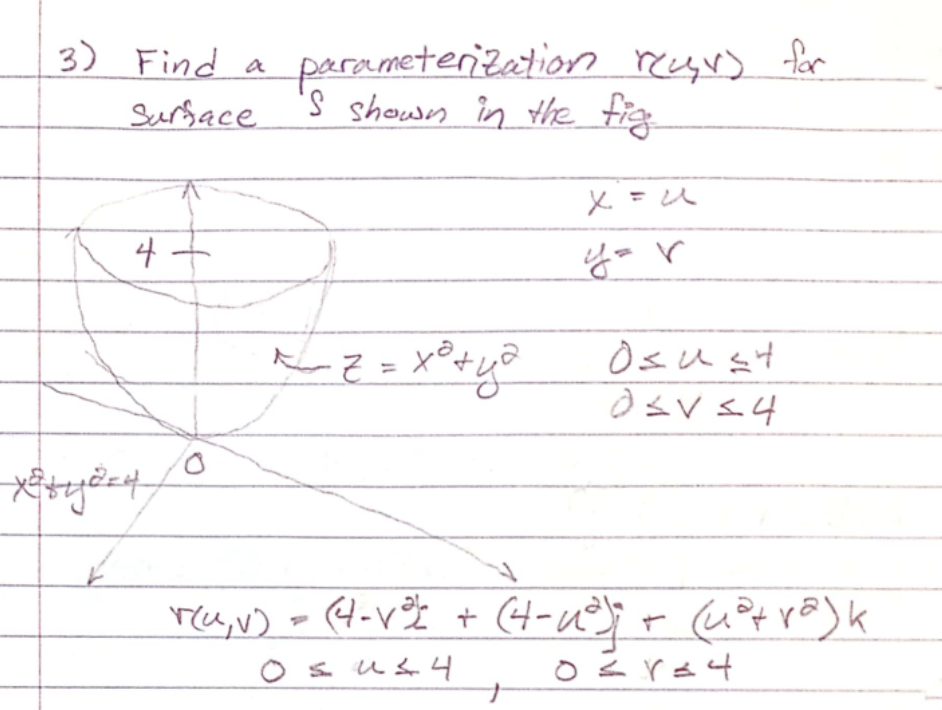 3) Find a parameterization r(u,v) for
surface S shown in the fig
x = u
4
y = v
z = x²+y²
0 ≤ u ≤ 4
0 ≤ v ≤ 4
0
x²+y²=4
r(u,v) = (4-v²)i + (4-u²)j + (u²+v²)k
0 ≤ u ≤ 4 , 0 ≤ v ≤ 4